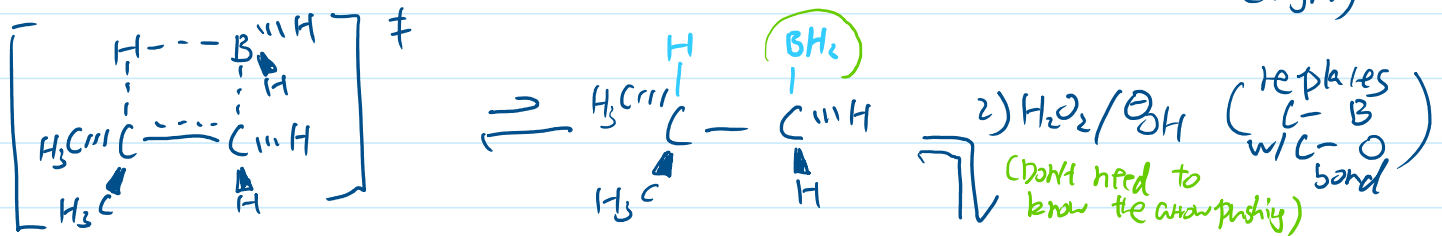 H --- B '''H ‡
H
H₃C''' C C '''H
H₃C H
H BH₂
H₃C''' C — C '''H
H₃C H
2) H₂O₂/⊖OH
(replaces
C – B
w/ C – O
bond)
(Don't need to
know the arrow pushing)